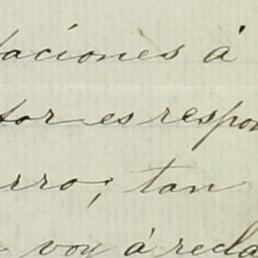 taciones á
tor es respon
rro; tan
voy á recla